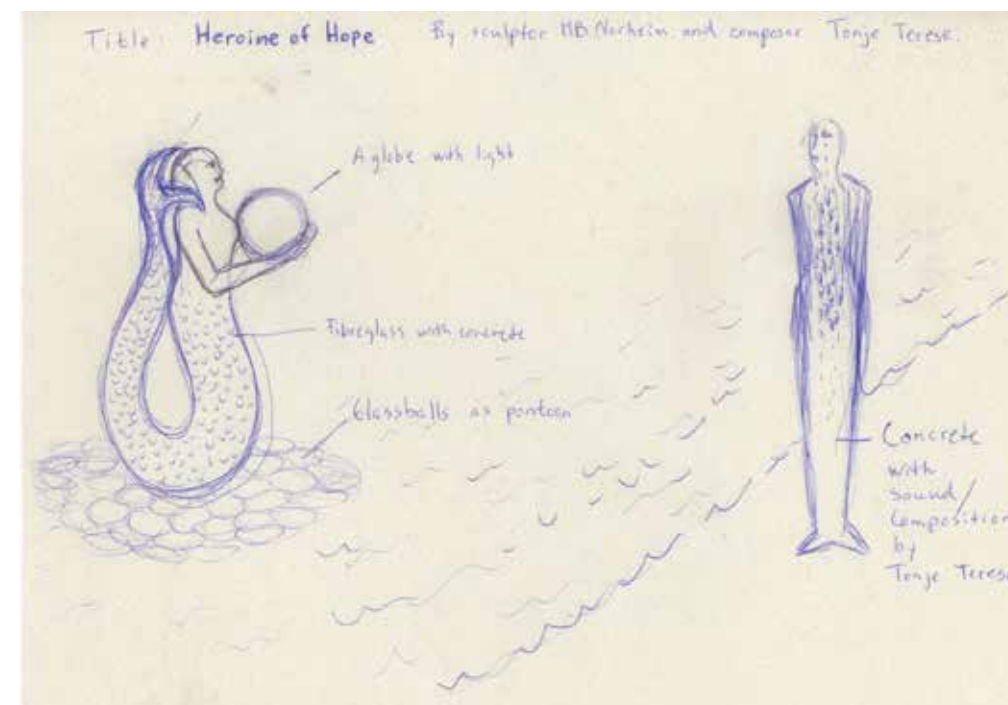 Title: Heroine of Hope By sculptor MB Norheim and composer Tonje Terese.
A globe with light
Fibreglass with concrete
Glassballs as pontoon
Concrete
with
sound
Composition
by
Tonje Terese